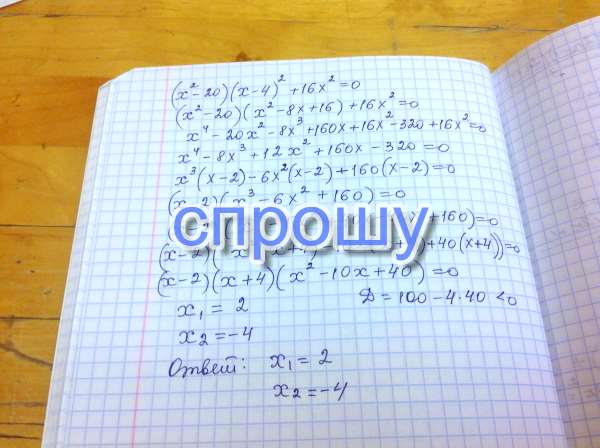 (x²-20)(x-4)²+16x²=0
(x²-20)(x²-8x+16)+16x²=0
x⁴-20x²-8x³+160x+16x²-320+16x²=0
x⁴-8x³+12x²+160x-320=0
x³(x-2)-6x²(x-2)+160(x-2)=0
(x-2)(x³-6x²+160)=0
+160)=0
спрошу
(x-2)( +40(x+4))=0
(x-2)(x+4)(x²-10x+40)=0
x₁=2 D=100-4·40<0
x₂=-4
Ответ: x₁=2
x₂=-4